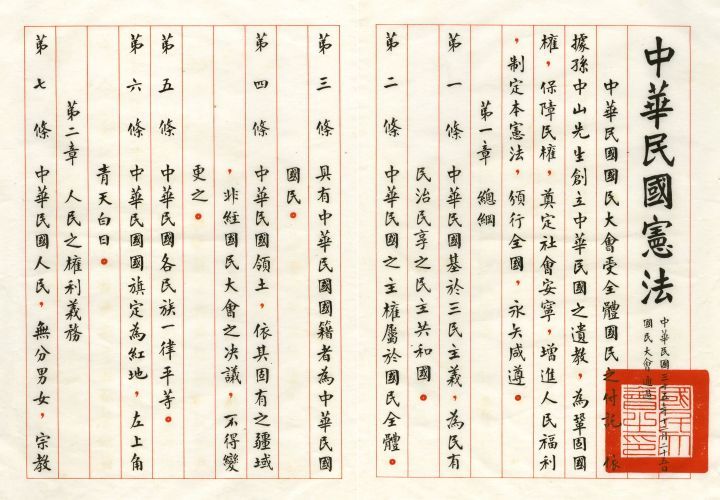 中華民國憲法
中華民國三十五年十二月二十五日
國民大會通過
中華民國國民大會受全體國民之付託,依
據孫中山先生創立中華民國之遺教,為鞏固國
權,保障民權,奠定社會安寧,增進人民福利
,制定本憲法,頒行全國,永矢咸遵。
第一章 總綱
第一條 中華民國基於三民主義,為民有
民治民享之民主共和國。
第二條 中華民國之主權屬於國民全體。
第三條 具有中華民國國籍者為中華民國
國民。
第四條 中華民國領土,依其固有之疆域
,非經國民大會之決議,不得變
更之。
第五條 中華民國各民族一律平等。
第六條 中華民國國旗定為紅地,左上角
青天白日。
第二章 人民之權利義務
第七條 中華民國人民,無分男女,宗教